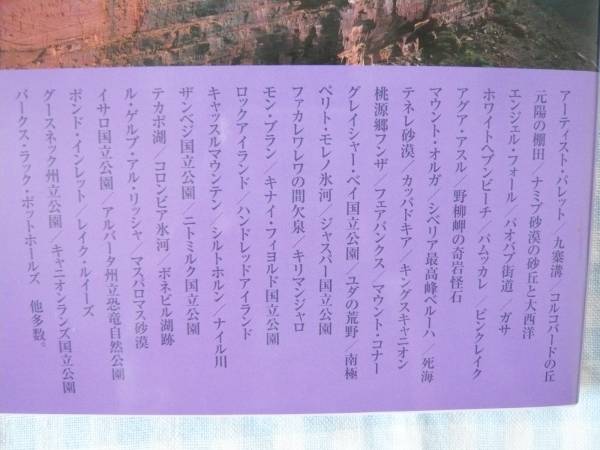 アーティスト・パレット／九寨溝／コルコバードの丘
元陽の棚田／ナミブ砂漠の砂丘と大西洋
エンジェル・フォール／バオバブ街道／ガサ
ホワイトヘブンビーチ／パムッカレ／ピンクレイク
アグア・アスル／野柳岬の奇岩怪石
マウント・オルガ／シベリア最高峰ベルーハ／死海
テネレ砂漠／カッパドキア／キングスキャニオン
桃源郷フンザ／フェアバンクス／マウント・コナー
グレイシャー・ベイ国立公園／ユダの荒野／南極
ペリト・モレノ氷河／ジャスパー国立公園
ファカレワレワの間欠泉／キリマンジャロ
モン・ブラン／キナイ・フィヨルド国立公園
ロックアイランド／ハンドレッドアイランド
キャッスルマウンテン／シルトホルン／ナイル川
ザンベジ国立公園／ニトミルク国立公園
テカポ湖／コロンビア氷河／ボネビル湖跡
ル・ゲルブ・アル・リッシャ／マスパロマス砂漠
イサロ国立公園／アルバータ州立恐竜自然公園
ポンド・インレット／レイク・ルイーズ
グースネック州立公園／キャニオンランズ国立公園
パークス・ラック・ポットホールズ　他多数。